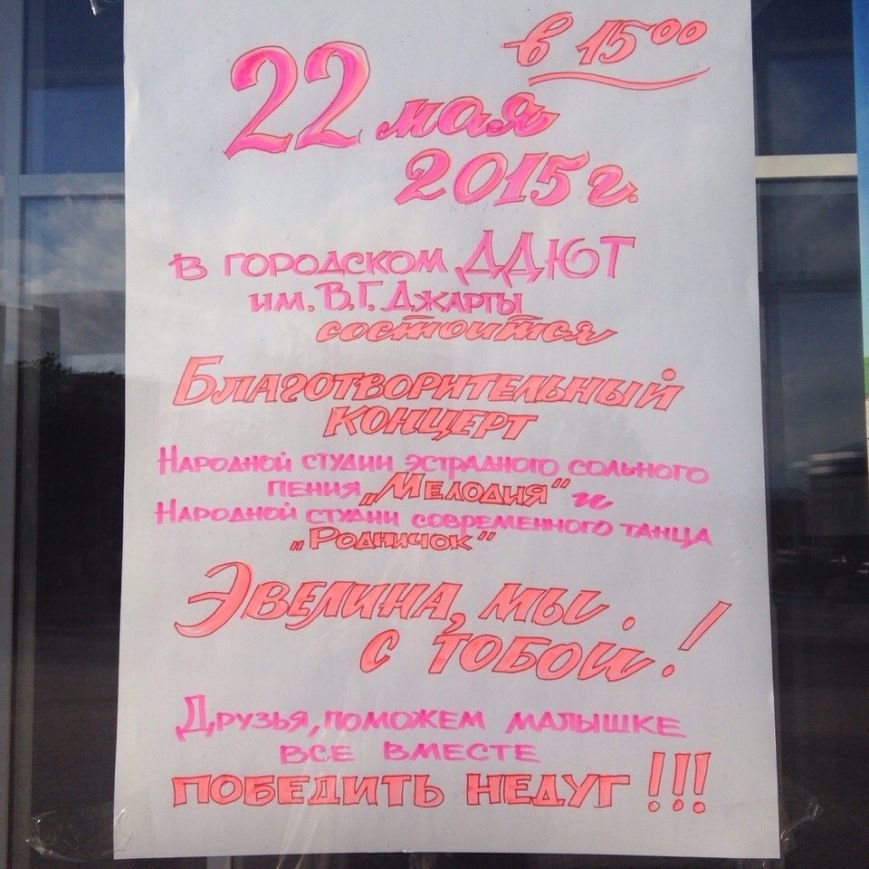 в 15⁰⁰
22 мая
2015 г.
в городском ДДЮТ
им. В.Г. Джарты
состоится
Благотворительный
концерт
Народной студии эстрадного сольного
пения „Мелодия" и
Народной студии современного танца
„Родничок"
Эвелина, мы
с тобой!
Друзья, поможем малышке
все вместе
победить недуг!!!